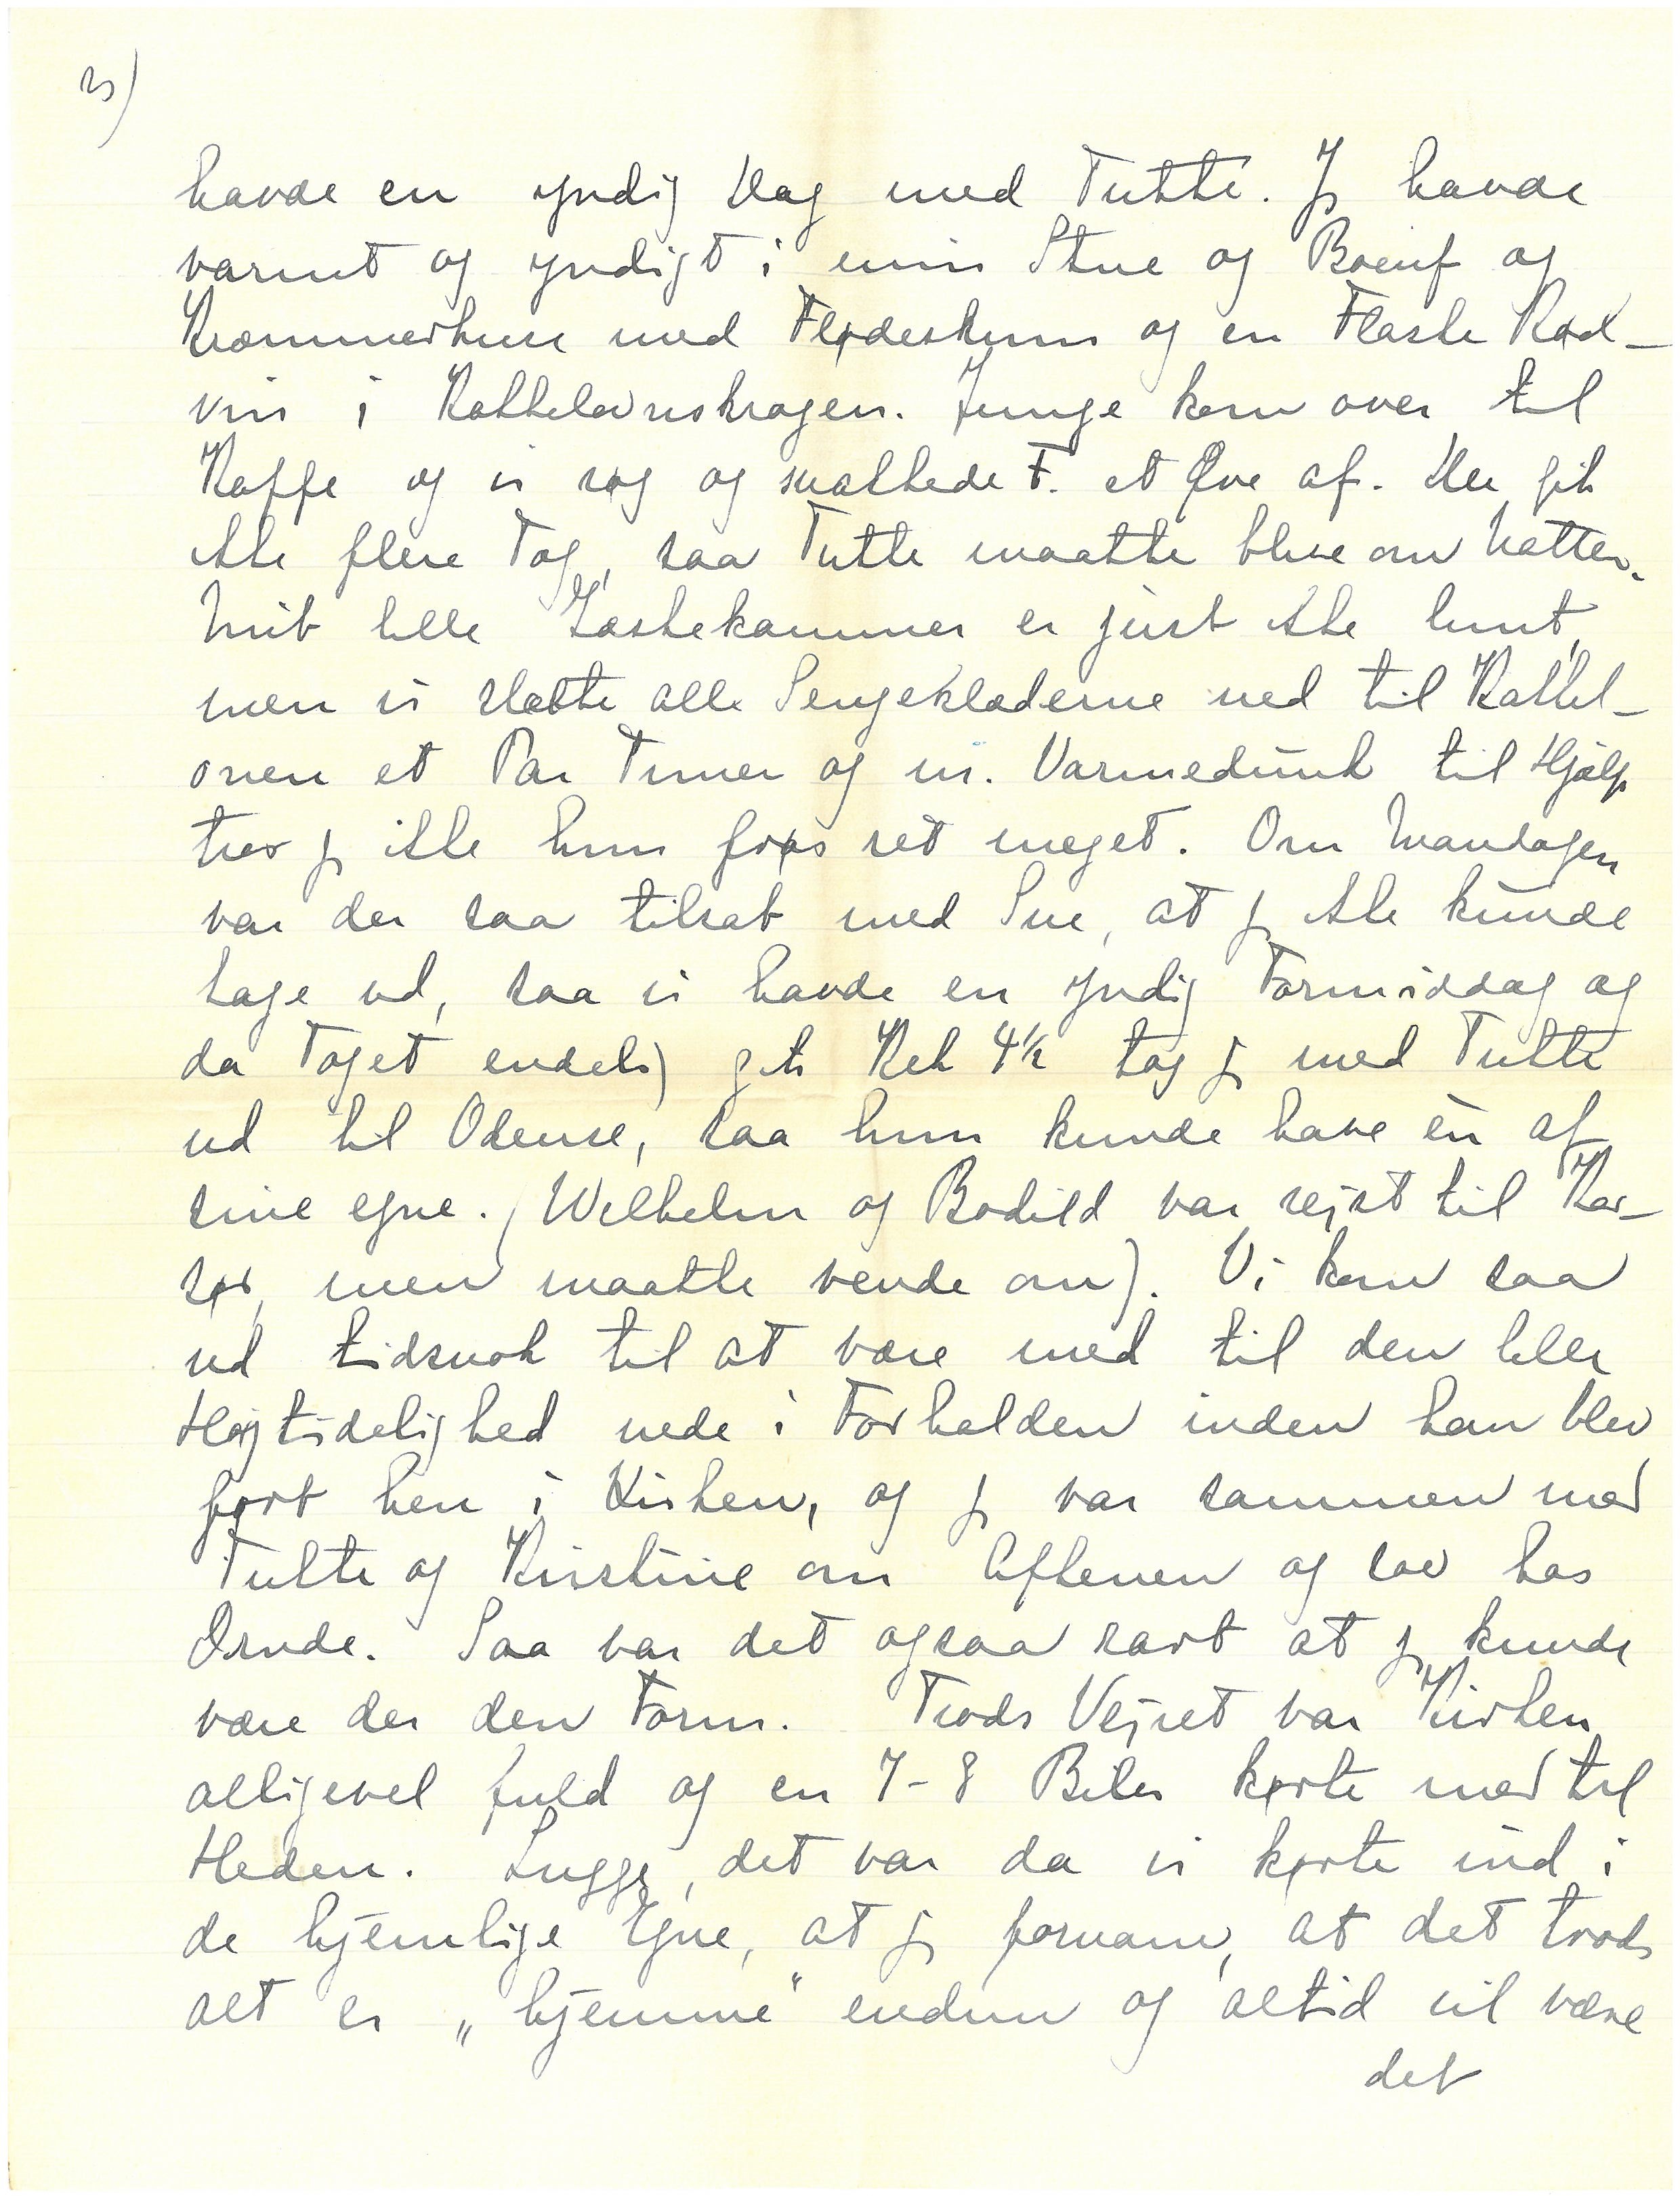 3)
havde en yndig Dag med Tutte. Jg havde
varmt og yndigt i min Stue og Boeuf og
Kræmmerhuse med Flødeskum og en Flaske Rød-
vin i Kakkelovnskrogen. Junge kom over til
Kaffe og vi røg og snakkede F. et Øre af. Der gik
ikke flere Tog, saa Tutte maatte blive om Natten.
Mit lille Gæstekammer er just ikke lunt,
men vi slæbte alle Sengeklæderne ned til Kakkel-
ovnen et Par Timer og m. Varmedunk til Hjælp
tror jg ikke hun frøs ret meget. Om Mandagen
var der saa tilsat med Sne, at jg ikke kunde
tage ud, saa vi havde en yndig Formiddag og
da Toget endelig gik Kl. 4½ tog jg med Tutte
ud til Odense, saa hun kunde have èn af
sine egne. (Wilhelm og Bodild var rejst til Kor-
sør, men maatte vende om). Vi kom saa
ud tidsnok til at være med til den lille
Højtidelighed nede i Forhallen inden han blev
ført hen i Kirken, og jg var sammen med
Tutte og Kirstine om Aftenen og sov hos
Ornde. Saa var det ogsaa rart at jg kunde
være der den Form. Trods Vejret var Kirken
alligevel fuld og en 7-8 Biler kørte med til
Heden. Lugge, det var da vi kørte ind i
de hjemlige Egne, at jg fornam, at det trods
alt er „hjemme" endnu og altid vil være
det